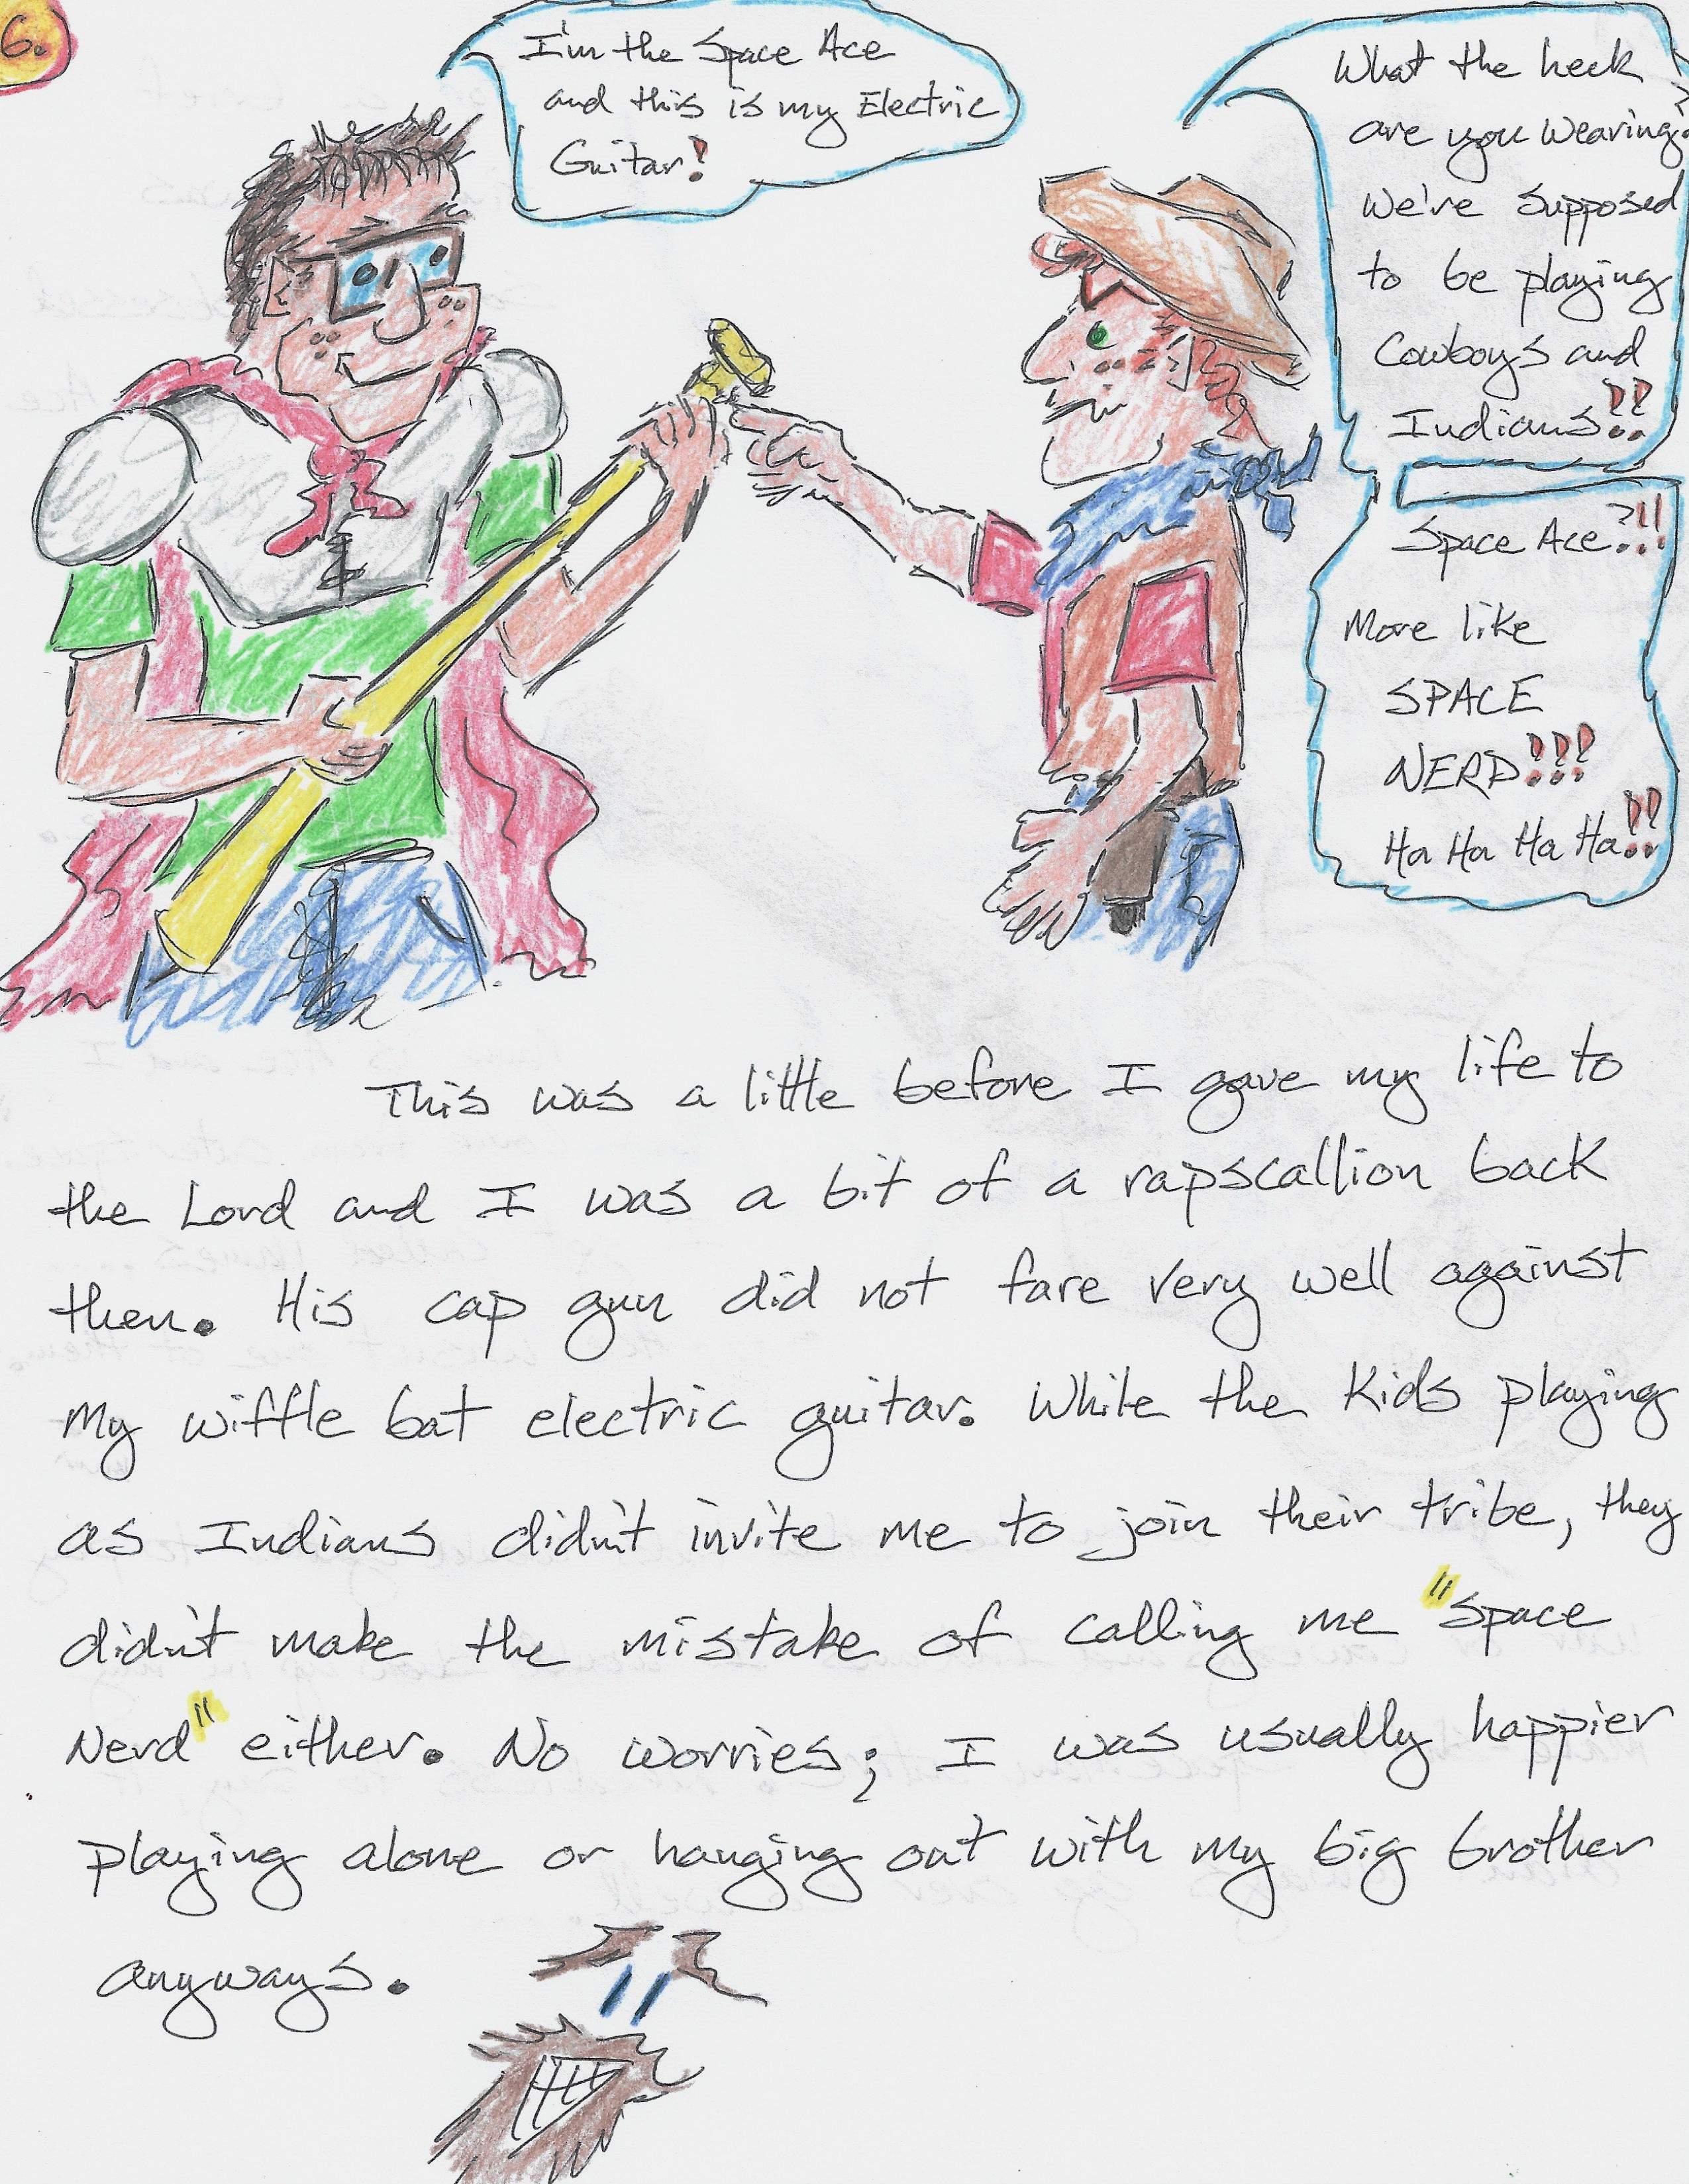 6.
I'm the Space Ace
and this is my Electric
Guitar!
What the heck
are you wearing?
We're supposed
to be playing
Cowboys and
Indians!!
Space Ace?!!
More like
SPACE
NERD!!!
Ha Ha Ha Ha!!
This was a little before I gave my life to
the Lord and I was a bit of a rapscallion back
then. His cap gun did not fare very well against
my wiffle bat electric guitar. While the kids playing
as Indians didn't invite me to join their tribe, they
didn't make the mistake of calling me "Space
Nerd" either. No worries; I was usually happier
playing alone or hanging out with my big brother
anyways.